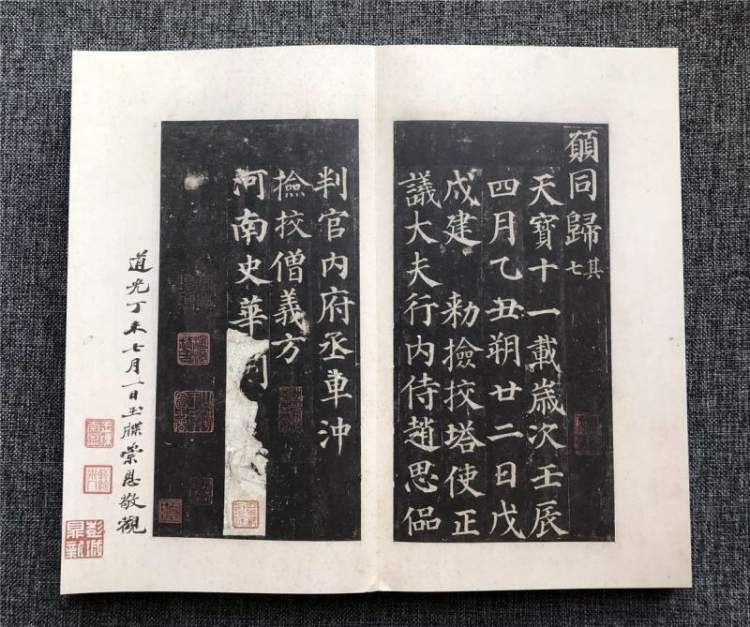 願同歸其七
天寶十一載歲次壬辰
四月乙丑朔廿二日戊
戍建 勑撿挍塔使正
議大夫行内侍趙思侃
判官内府丞車冲
撿挍僧義方
河南史華刻
道光丁未七月一日玉牒崇恩敬觀